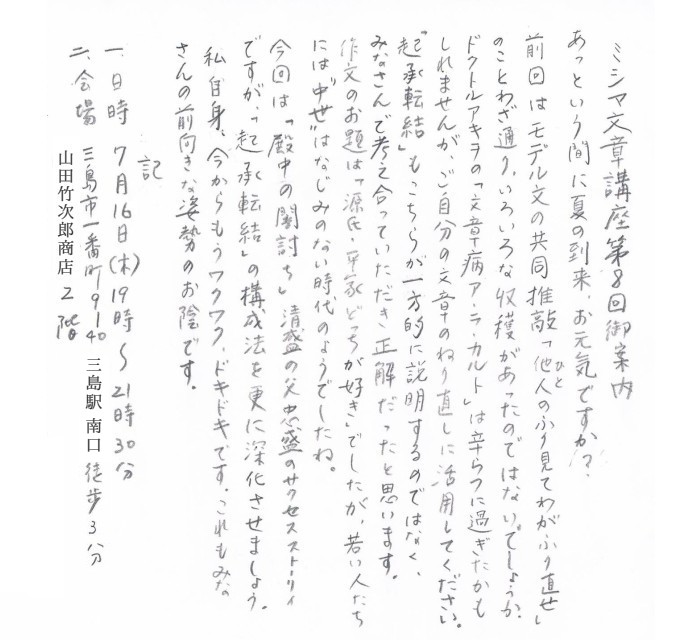 ミシマ文章講座第8回御案内
あっという間に夏の到来、お元気ですか？
前回はモデル文の共同推敲「他人のふり見てわがふり直せ」
ひと
のことわざ通り、いろいろな収穫があったのではないでしょうか。
ドクトルアキヲの「文章病ア・ラ・カルト」は辛らつに過ぎたかも
しれませんが、ご自分の文章のねり直しに活用してください。
「起承転結」もこちらが一方的に説明するのではなく、
みなさんで考え合っていただき正解だったと思います。
作文のお題は「源氏・平家どっちが好き」でしたが、若い人たち
には“中世”はなじみのない時代のようでしたね。
今回は「殿中の闇討ち」清盛の父忠盛のサクセスストーリィ
ですが、「起承転結」の構成法を更に深化させましょう。
私自身、今からもうワクワク、ドキドキです。これもみな
さんの前向きな姿勢のお陰です。
記
一、日時 7月16日(木)19時〜21時30分
二、会場 三島市一番町9-40 三島駅南口徒歩3分
山田竹次郎商店2階